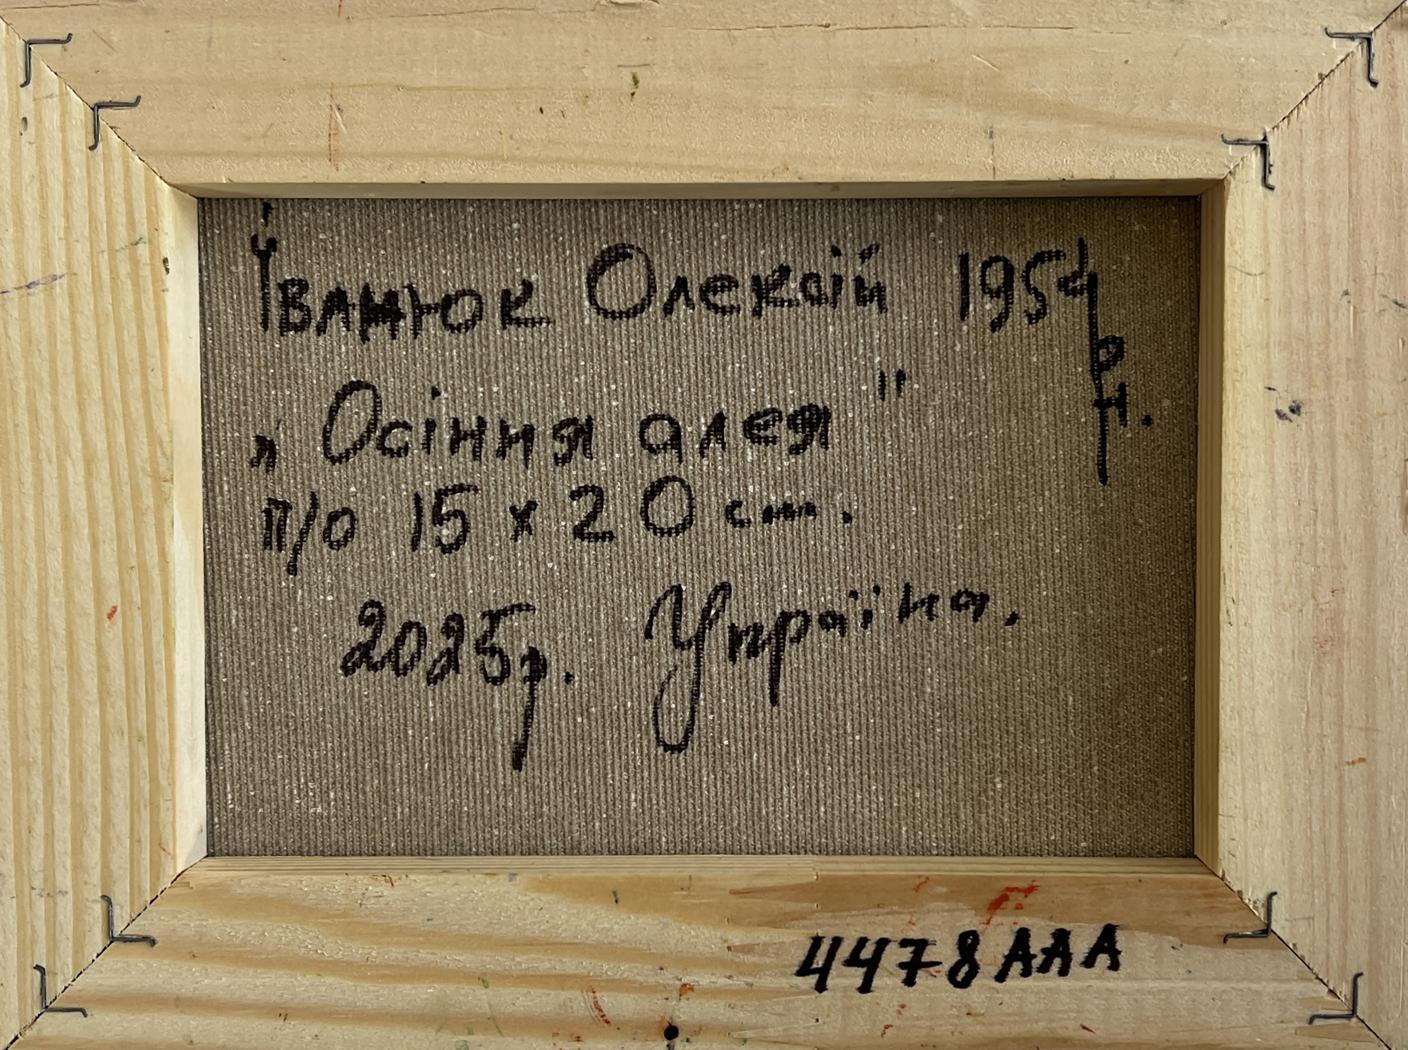 Іванюк Олексій 1954 р.н.
„Осіння алея"
п/о 15 х 20 см.
2025р. Україна.
4478ААА